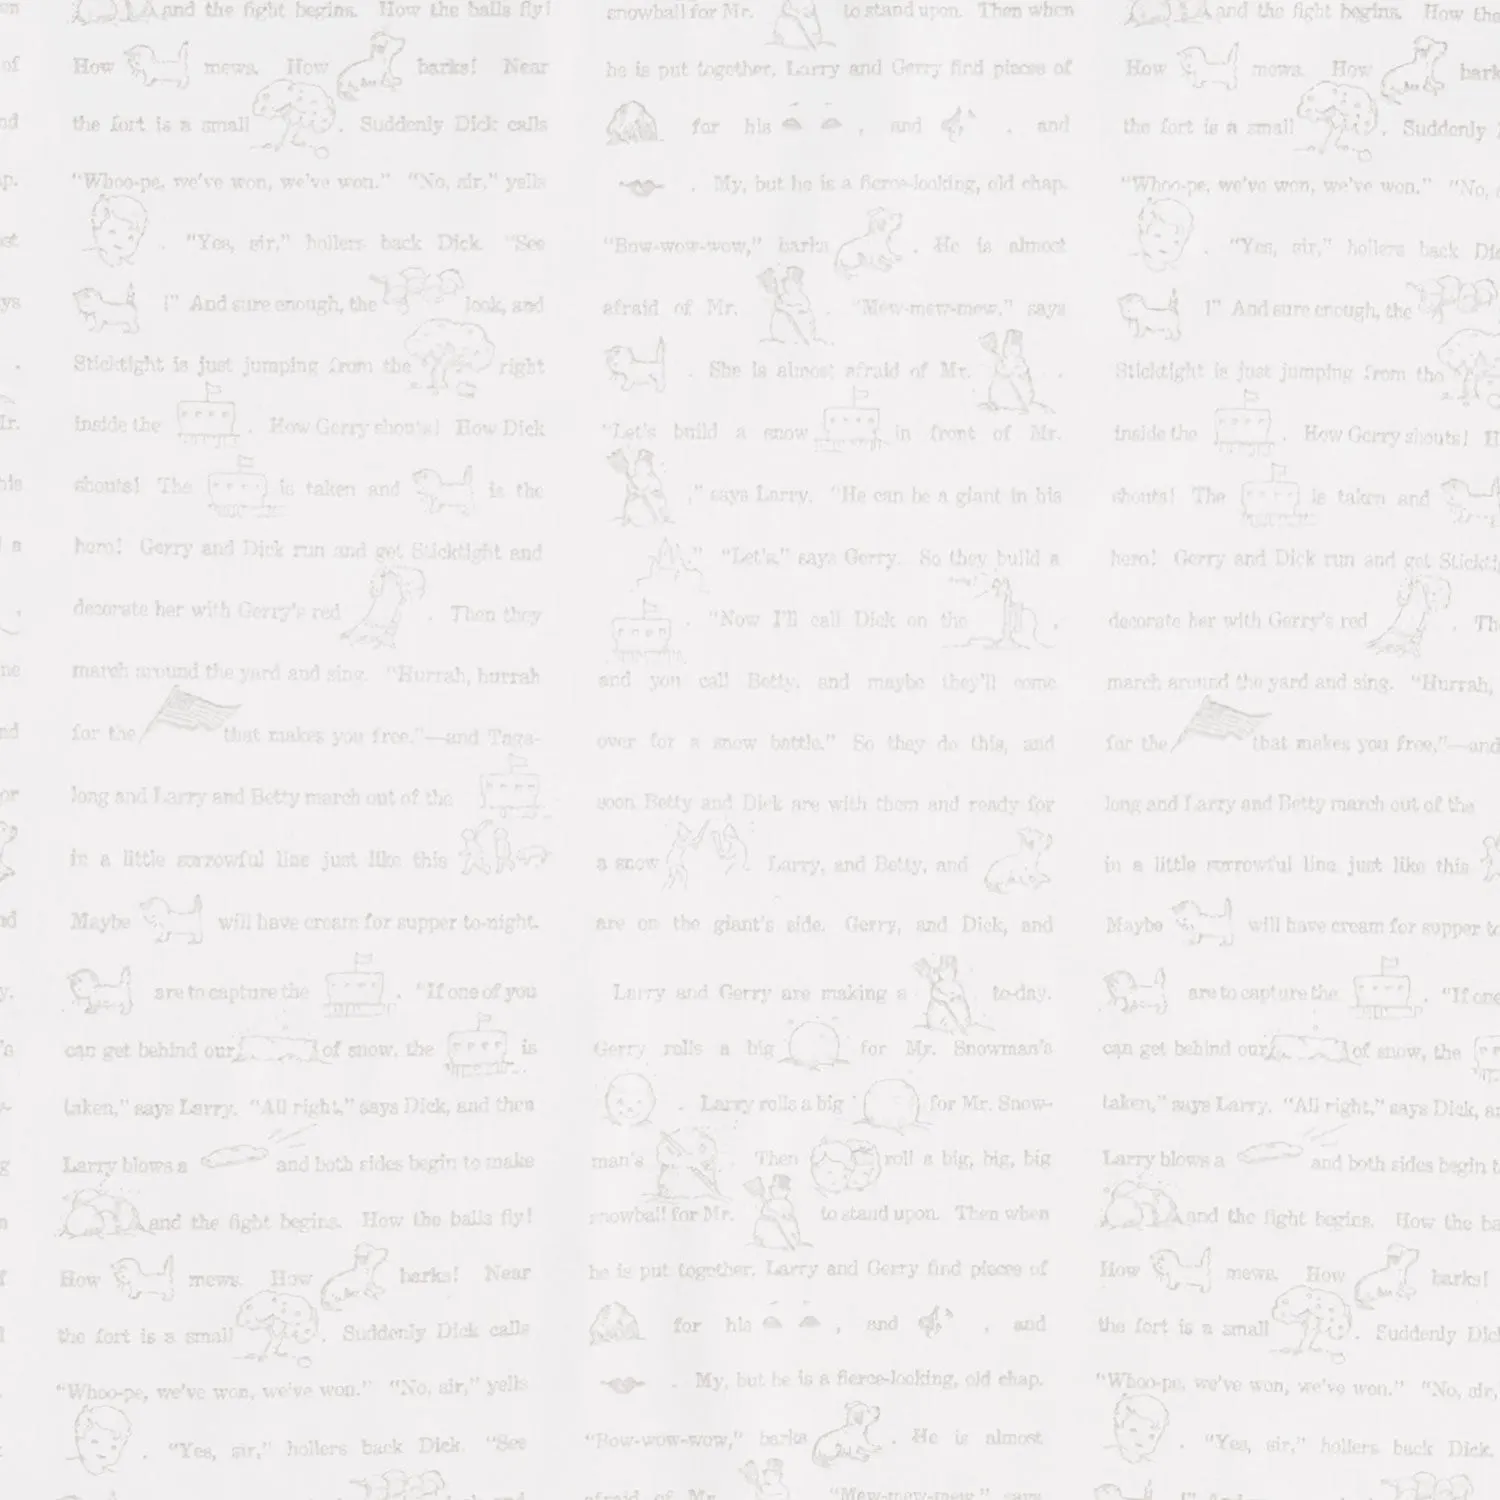 and the fight begins. How the balls fly!
How mews. How barks! Near
the fort is a small . Suddenly Dick calls
“Whoo-pe, we’ve won, we’ve won.” “No, sir,” yells
. “Yes, sir,” hollers back Dick. “See
!” And sure enough, the look, and
Sticktight is just jumping from the right
inside the . How Gerry shouts! How Dick
shouts! The is taken and is the
hero! Gerry and Dick run and get Sticktight and
decorate her with Gerry’s red . Then they
march around the yard and sing. “Hurrah, hurrah
for the that makes you free.”—and Tags-
long and Larry and Betty march out of the
in a little sorrowful line just like this
Maybe will have cream for supper to-night.
are to capture the . “If one of you
can get behind our of snow, the is
taken,” says Larry. “All right,” says Dick, and then
Larry blows a and both sides begin to make
and the fight begins. How the balls fly!
How mews. How barks! Near
the fort is a small . Suddenly Dick calls
“Whoo-pe, we’ve won, we’ve won.” “No, sir,” yells
. “Yes, sir,” hollers back Dick. “See
snowball for Mr. to stand upon. Then when
he is put together, Larry and Gerry find pieces of
for his , and , and
. My, but he is a fierce-looking, old chap.
“Bow-wow-wow,” barks . He is almost
afraid of Mr. . “Mew-mew-mew,” says
. She is almost afraid of Mr. .
“Let’s build a snow in front of Mr.
,” says Larry. “He can be a giant in his
” “Let’s,” says Gerry. So they build a
. “Now I’ll call Dick on the ,
and you call Betty, and maybe they’ll come
over for a snow battle.” So they do this, and
soon Betty and Dick are with them and ready for
a snow Larry, and Betty, and
are on the giant’s side. Gerry, and Dick, and
Larry and Gerry are making a to-day.
Gerry rolls a big for Mr. Snowman’s
. Larry rolls a big for Mr. Snow-
man’s . Then roll a big, big, big
snowball for Mr. to stand upon. Then when
he is put together, Larry and Gerry find pieces of
for his , and , and
. My, but he is a fierce-looking, old chap.
“Bow-wow-wow,” barks . He is almost
afraid of Mr. “Mew-mew-mew,” says
and the fight begins. How the
How mews. How
the fort is a small . Suddenly
“Whoo-pe, we’ve won, we’ve won.” “No,
. “Yes, sir,” hollers back
!” And sure enough, the
Sticktight is just jumping from the
inside the . How Gerry shouts!
shouts! The is taken and
hero! Gerry and Dick run and get
decorate her with Gerry’s red .
march around the yard and sing. “Hurrah,
for the that makes you free.”—and
long and Larry and Betty march out of the
in a little sorrowful line just like this
Maybe will have cream for supper
are to capture the . “If one
can get behind our of snow, the
taken,” says Larry. “All right,” says Dick,
Larry blows a and both sides begin
and the fight begins. How the
How mews. How barks!
the fort is a small . Suddenly
“Whoo-pe, we’ve won, we’ve won.” “No, sir,
. “Yes, sir,” hollers back Dick.